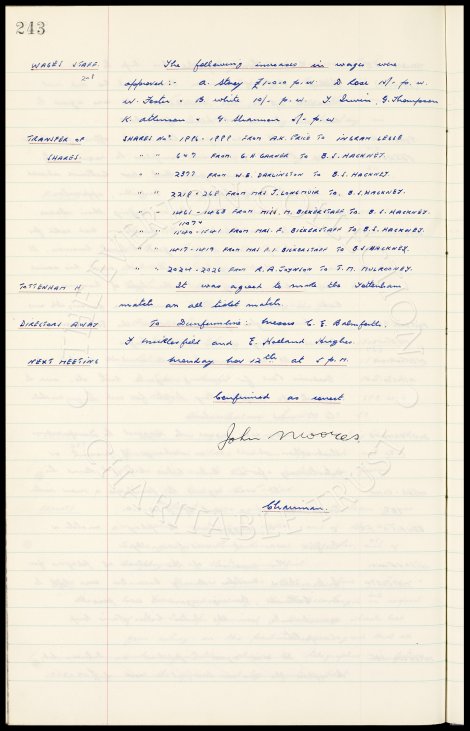 243
WAGES STAFF. The following increases in wages were
approved:- A. Storey £1-0-0 p.w. D. Rose 10/- p.w.
W. Foster & B. White 10/- p.w. T. Irwin, G. Thompson
K. Atkinson & G. Shannon 5/- p.w
TRANSFER OF SHARES NOS. 1996-1999 FROM A.K. PRICE TO INGRAM LEGGE
SHARES. " " 647 FROM G.H. GARNER TO B.S. HACKNEY.
" " 2377 FROM W.E. DARLINGTON TO B.S. HACKNEY.
" " 2218 + 268 FROM MRS J. LONGMUIR TO B.S. HACKNEY.
" " 1461-1463 FROM MISS. M. BICKERSTAFF TO. B.S. HACKNEY.
" " 1540-1541 FROM MRS F. BICKERSTAFF TO B.S. HACKNEY.
" " 1417-1419 FROM MRS F.I. BICKERSTAFF TO B.S. HACKNEY.
" " 2024-2026 FROM R.A. JOYNSON TO J.M. MULROONEY.
TOTTENHAM H. It was agreed to make the Tottenham
match an all ticket match.
DIRECTORS AWAY To Dunfermline: Messrs C. E. Balmforth.
F. Micklesfield and E. Holland Hughes.
NEXT MEETING Monday Nov 12th at 5 p.m.
Confirmed as correct
John Moores.
Chairman.
THE EVERTON COLLECTION
CHARITABLE TRUST